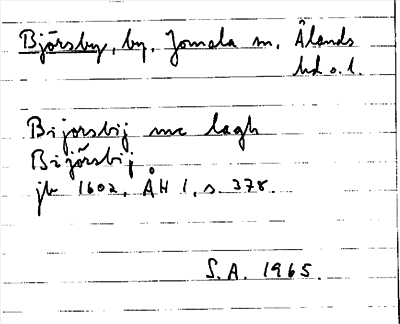 Björsby, by, Jomala sn, Ålands
hd o. l.
Bijorsbij mc lagh
Bijörsbij
jb 1602, ÅH 1, s. 378.
S.A. 1965.